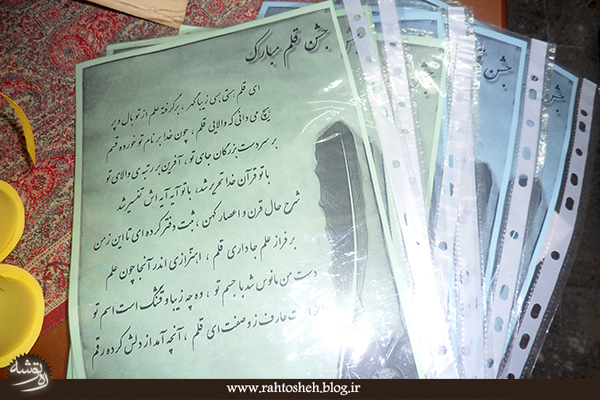 جشن قلم مبارک
ای قلم هستی بسی زیبا گهر ، برگرفته علم از تو بال و پر
هیچ می دانی که والایی قلم ، چون خدا بر نام تو خورده قسم
بر سر دست بزرگان جای تو ، آفرین بر رتبه ی والای تو
با تو قرآن خدا تحریر شد، با تو آیه آیه اش تفسیر شد
شرح حال قرن و اعصار کهن ، ثبت دفتر کرده ای تا این زمن
بر فراز علم جا داری قلم ، اهتزازی اندر آنجا چون علم
دست من مانوس شد با جسم تو ، وه چه زیبا و قشنگ است اسم تو
عارف ز وصفت ای قلم ، آنچه آمد از دلش کرده رقم
جشن
جشن
ره توشه
www.rahtosheh.blog.ir